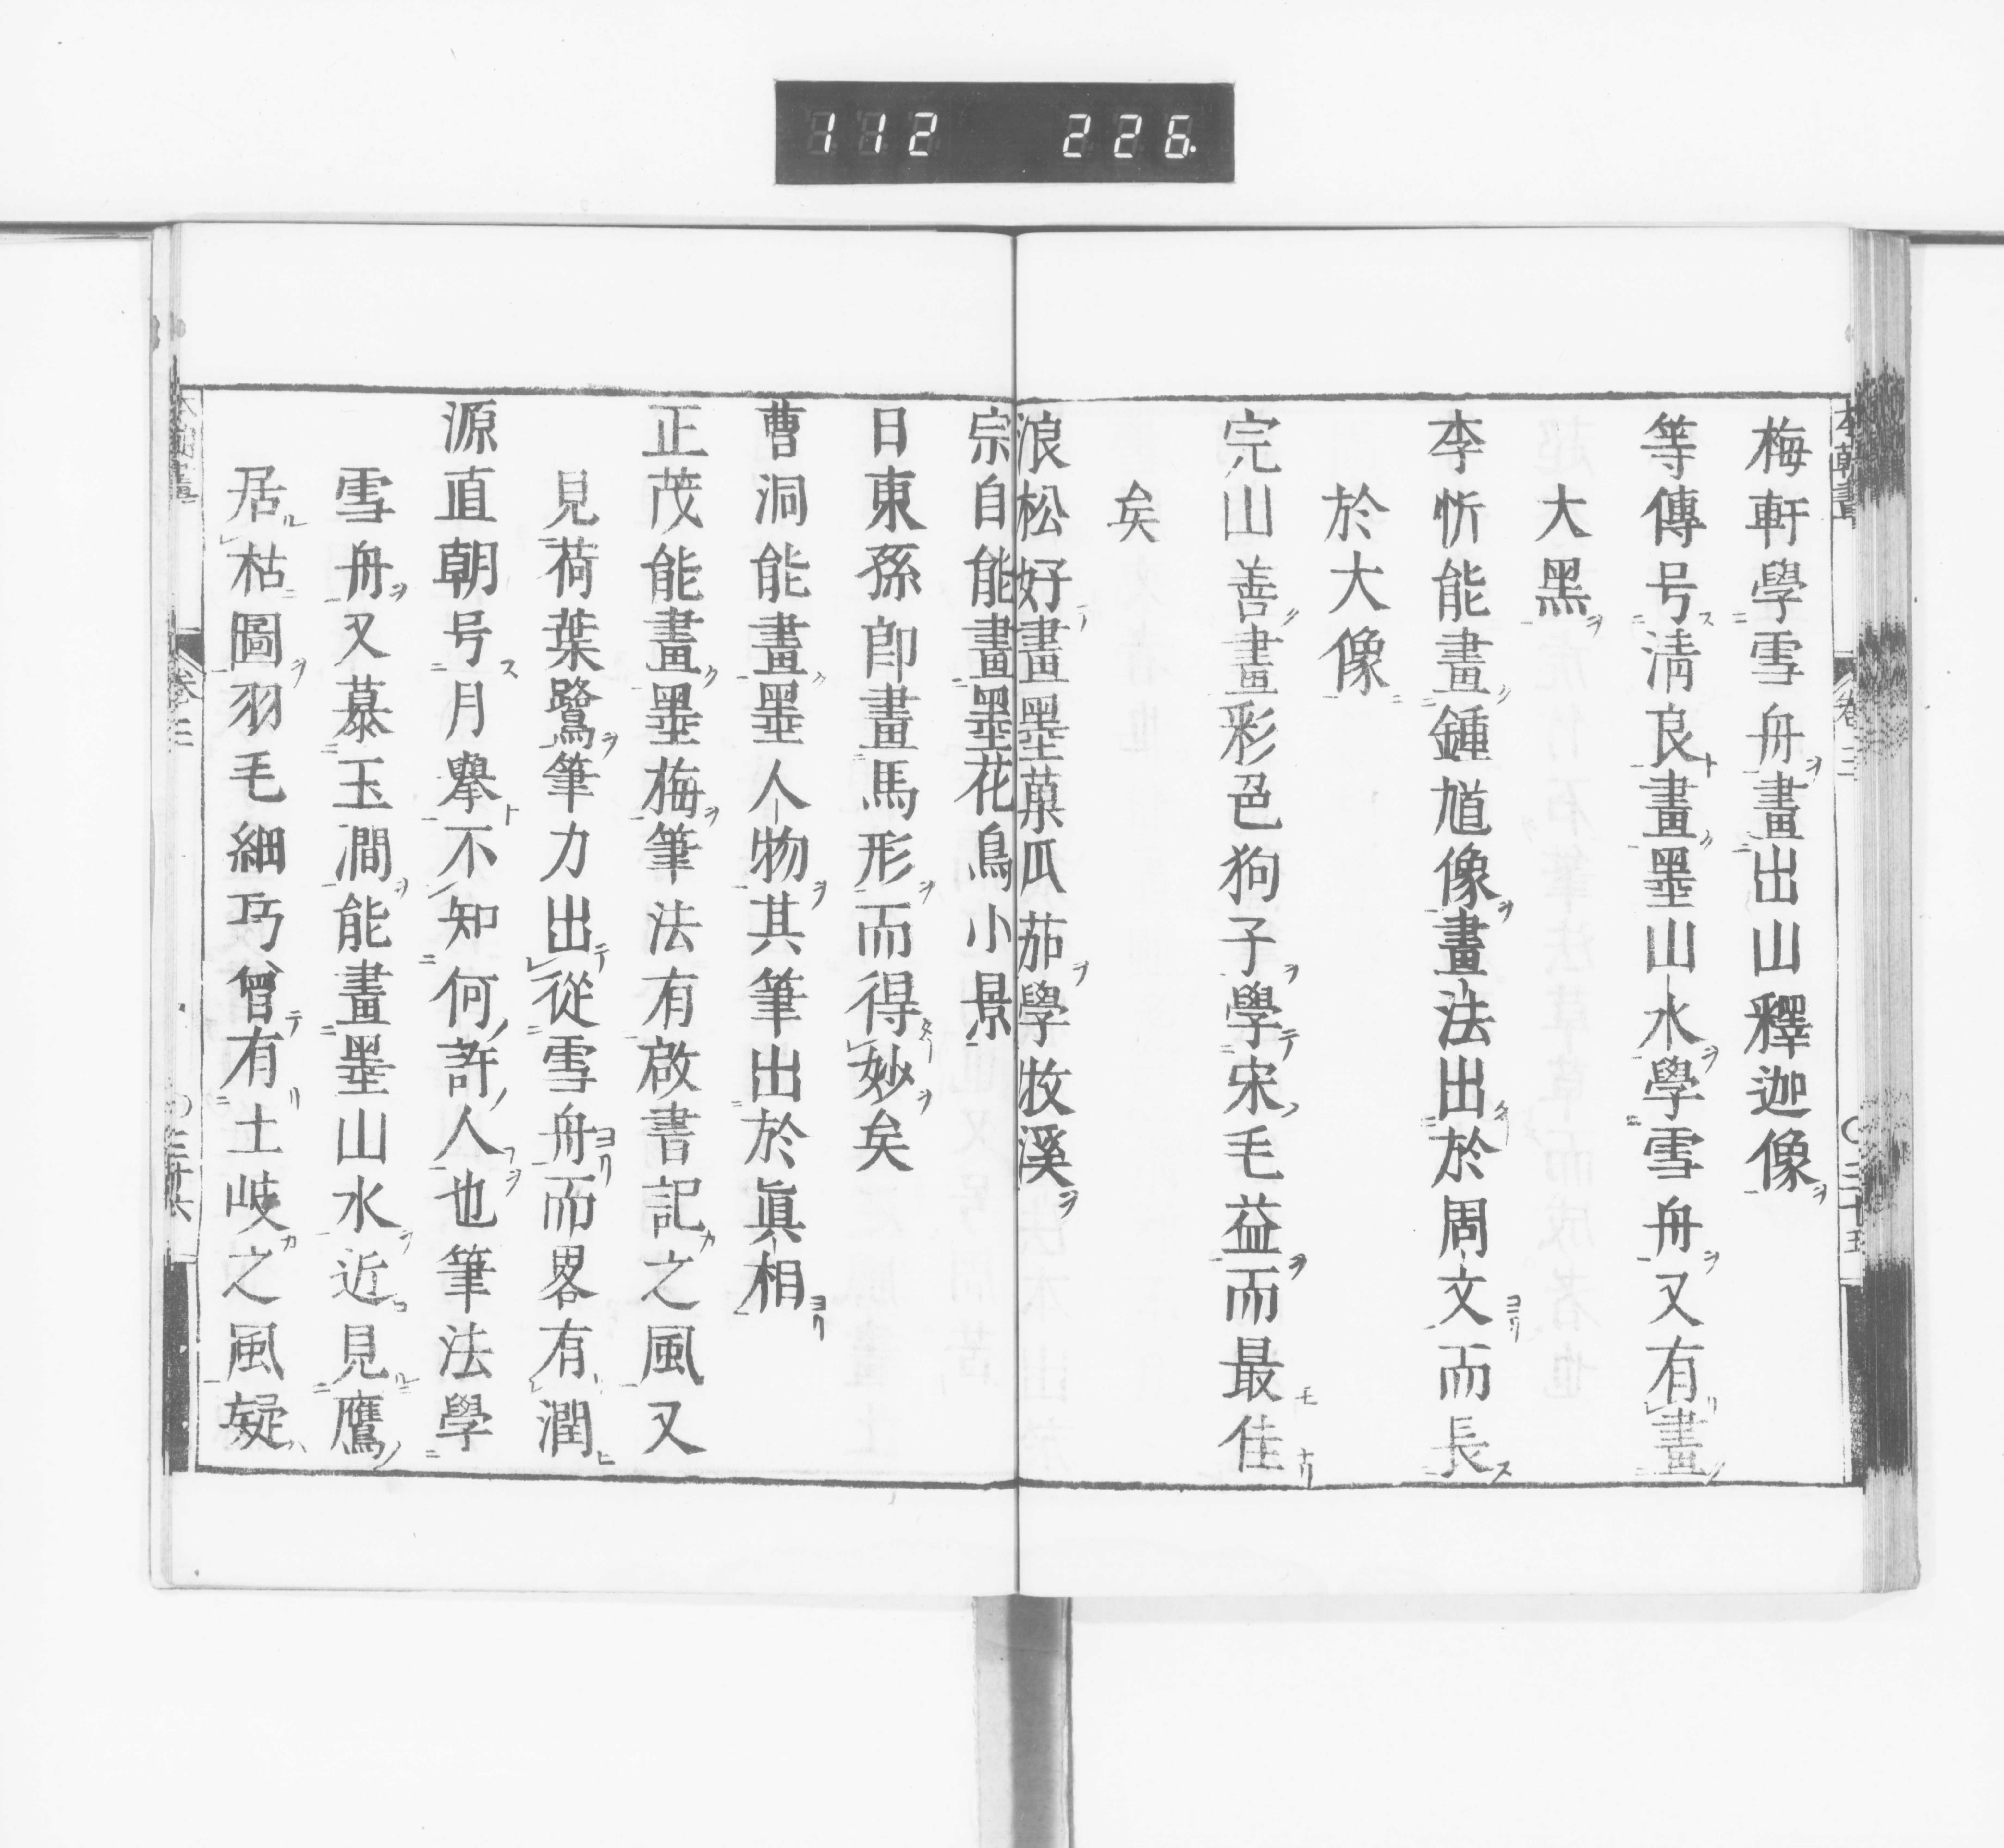 112 226.
梅軒學雪舟畫出山釋迦像
等傳号淸良畫墨山水學雪舟又有畫
大黑
李忻能畫鍾馗像畫法出於周文而長
於大像
完山善畫彩色狗子學宋毛益而最佳
矣
浪松好畫墨菓瓜茄學牧溪
宗自能畫墨花鳥小景
日東孫郎畫馬形而得妙矣
曹洞能畫墨人物其筆出於眞相
正茂能畫墨梅筆法有啟書記之風又
見荷葉鷺筆力出從雪舟而畧有潤
源直朝号月擧不知何許人也筆法學
雪舟又慕玉澗能畫墨山水近見鷹
居枯圖羽毛細巧曾有土岐之風疑